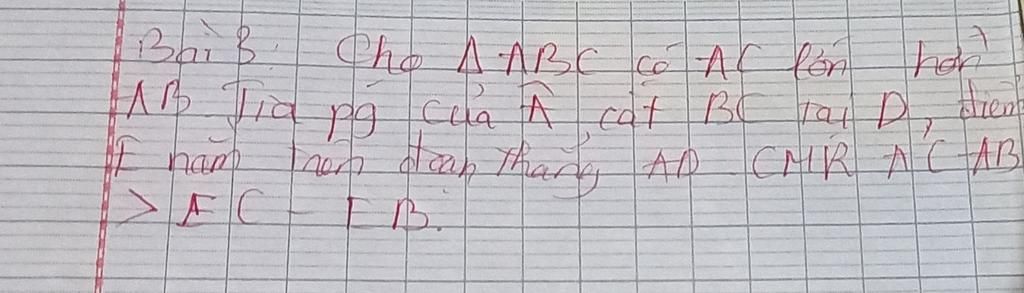 Bài 8. Cho Δ ABC có AC lớn hơn
AB Tia pg của Â, cắt BC tại D, điểm
E nằm trên đoạn thẳng AD CMR AC-AB
> EC - EB.